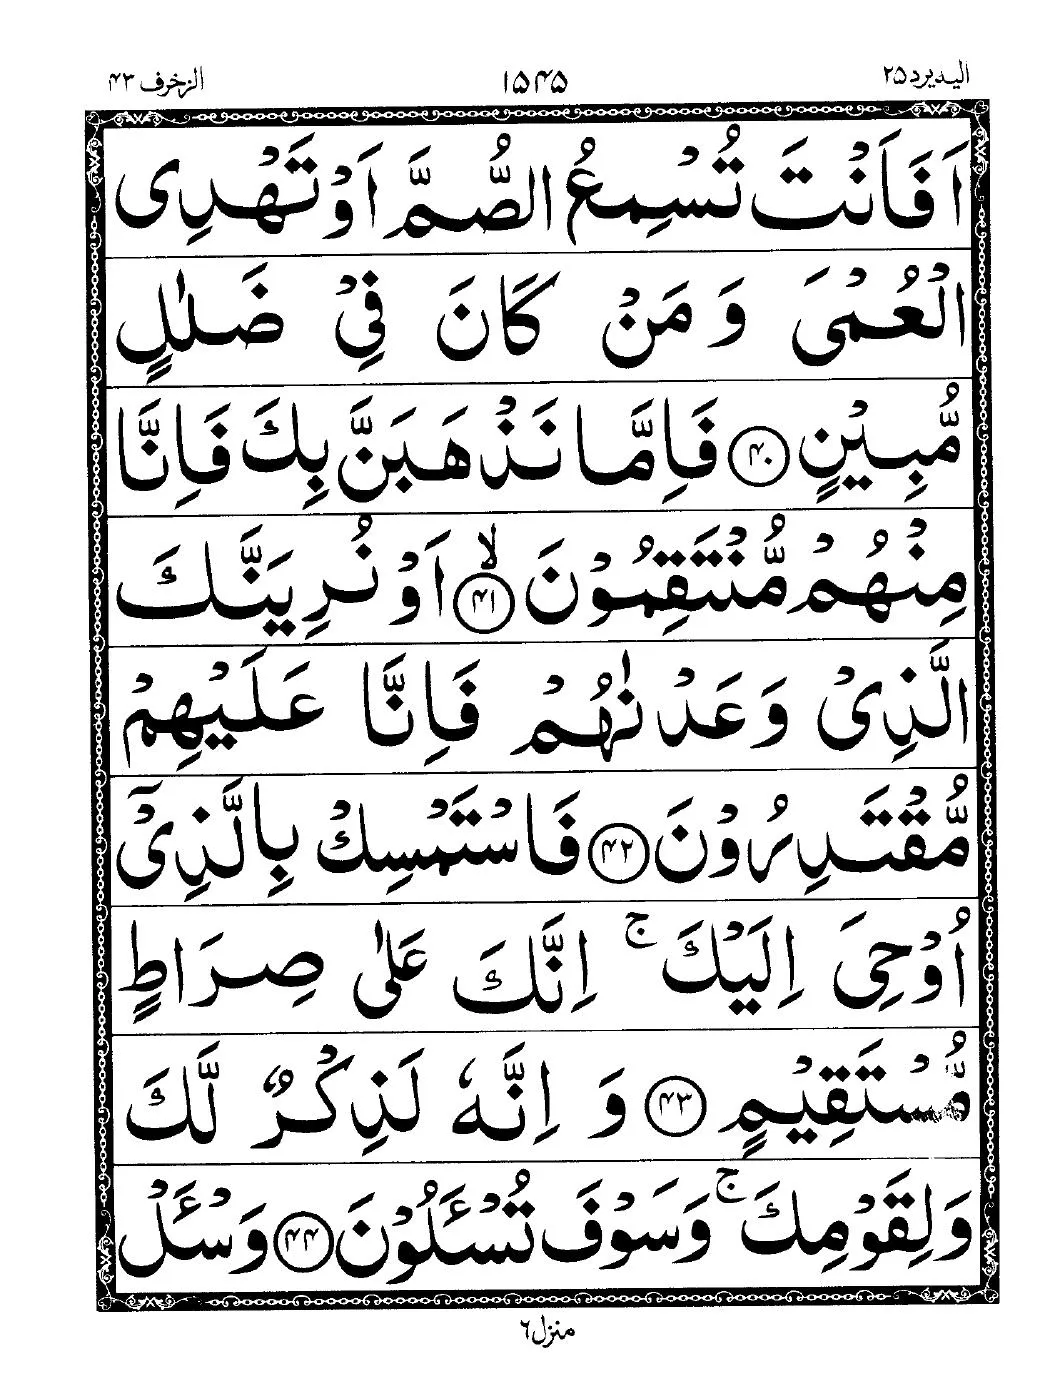 الیه یرد ۲۵
۱۵۴۵
الزخرف ۴۳
اَفَاَنْتَ تُسْمِعُ الصُّمَّ اَوْ تَهْدِی
الْعُمْیَ وَ مَنْ كَانَ فِیْ ضَلٰلٍ
مُّبِیْنٍ ﴿۴۰﴾ فَاِمَّا نَذْهَبَنَّ بِكَ فَاِنَّا
مِنْهُمْ مُّنْتَقِمُوْنَ ﴿۴۱﴾ ۙ اَوْ نُرِیَنَّكَ
الَّذِیْ وَعَدْنٰهُمْ فَاِنَّا عَلَیْهِمْ
مُّقْتَدِرُوْنَ ﴿۴۲﴾ فَاسْتَمْسِكْ بِالَّذِیْۤ
اُوْحِیَ اِلَیْكَ ۚ اِنَّكَ عَلٰی صِرَاطٍ
مُّسْتَقِیْمٍ ﴿۴۳﴾ وَ اِنَّهٗ لَذِكْرٌ لَّكَ
وَلِقَوْمِكَ ۚ وَسَوْفَ تُسْـَٔلُوْنَ ﴿۴۴﴾ وَسْـَٔلْ
منزل ۶